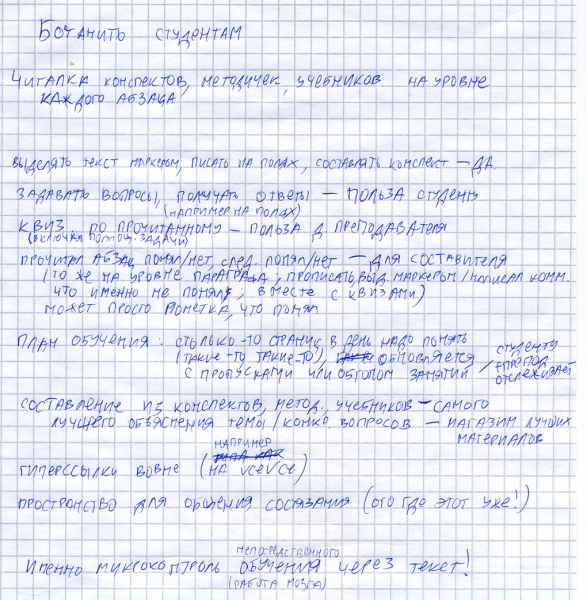 БОТАНИТЬ СТУДЕНТАМ
ЧИТАЛКА КОНСПЕКТОВ, МЕТОДИЧЕК, УЧЕБНИКОВ НА УРОВНЕ
КАЖДОГО АБЗАЦА
ВЫДЕЛЯТЬ ТЕКСТ МАРКЕРОМ, ПИСАТЬ НА ПОЛЯХ, СОСТАВЛЯТЬ КОНСПЕКТ — ДА.
ЗАДАВАТЬ ВОПРОСЫ, ПОЛУЧАТЬ ОТВЕТЫ — ПОЛЬЗА СТУДЕНТУ
(НАПРИМЕР НА ПОЛЯХ)
КВИЗ ПО ПРОЧИТАННОМУ — ПОЛЬЗА Д. ПРЕПОДАВАТЕЛЯ
(ВКЛЮЧАЯ ПОЛНОЦ. ЗАДАЧИ)
ПРОЧИТАЛ АБЗАЦ ПОНЯЛ/НЕТ, СЛЕД. ПОНЯЛ/НЕТ — ДЛЯ СОСТАВИТЕЛЯ
(ТО ЖЕ НА УРОВНЕ ПАРАГРАФА; ПРОПИСАТЬ ВЫД. МАРКЕРОМ/НАПИСАЛ КОММ.
ЧТО ИМЕННО НЕ ПОНЯЛ; ВМЕСТЕ С КВИЗАМИ)
МОЖЕТ ПРОСТО ПОМЕТКА, ЧТО ПОНЯЛ
ПЛАН ОБУЧЕНИЯ: СТОЛЬКО-ТО СТРАНИЦ В ДЕНЬ НАДО ПОНЯТЬ
(ТАКИЕ-ТО ТАКИЕ-ТО), ОБНОВЛЯЕТСЯ
С ПРОПУСКАМИ ИЛИ ОБГОНОМ ЗАНЯТИЙ / СТУДЕНТУ
+ПРЕПОД
ОТСЛЕЖИВАЕТ
СОСТАВЛЕНИЕ ИЗ КОНСПЕКТОВ, МЕТОД., УЧЕБНИКОВ — САМОГО
ЛУЧШЕГО ОБЪЯСНЕНИЯ ТЕМЫ / КОНКР. ВОПРОСОВ — МАГАЗИН ЛУЧШИХ
МАТЕРИАЛОВ
НАПРИМЕР
ГИПЕРССЫЛКИ ВОВНЕ (НА VCEVCE)
ПРОСТРАНСТВО ДЛЯ ОБЩЕНИЯ СОСТЯЗАНИЯ (ОГО ГДЕ ЭТОТ УЖЕ!)
НЕПОСРЕДСТВЕННОГО
ИМЕННО МИКРОКОНТРОЛЬ ОБУЧЕНИЯ ЧЕРЕЗ ТЕКСТ!
(РАБОТА МОЗГА)